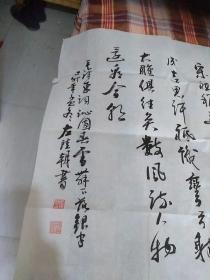 宋祖稍
成吉思汗祇識彎弓射
大雕俱往矣數風流人物
還看今朝
毛澤東詞沁園春雪
年孟冬左書